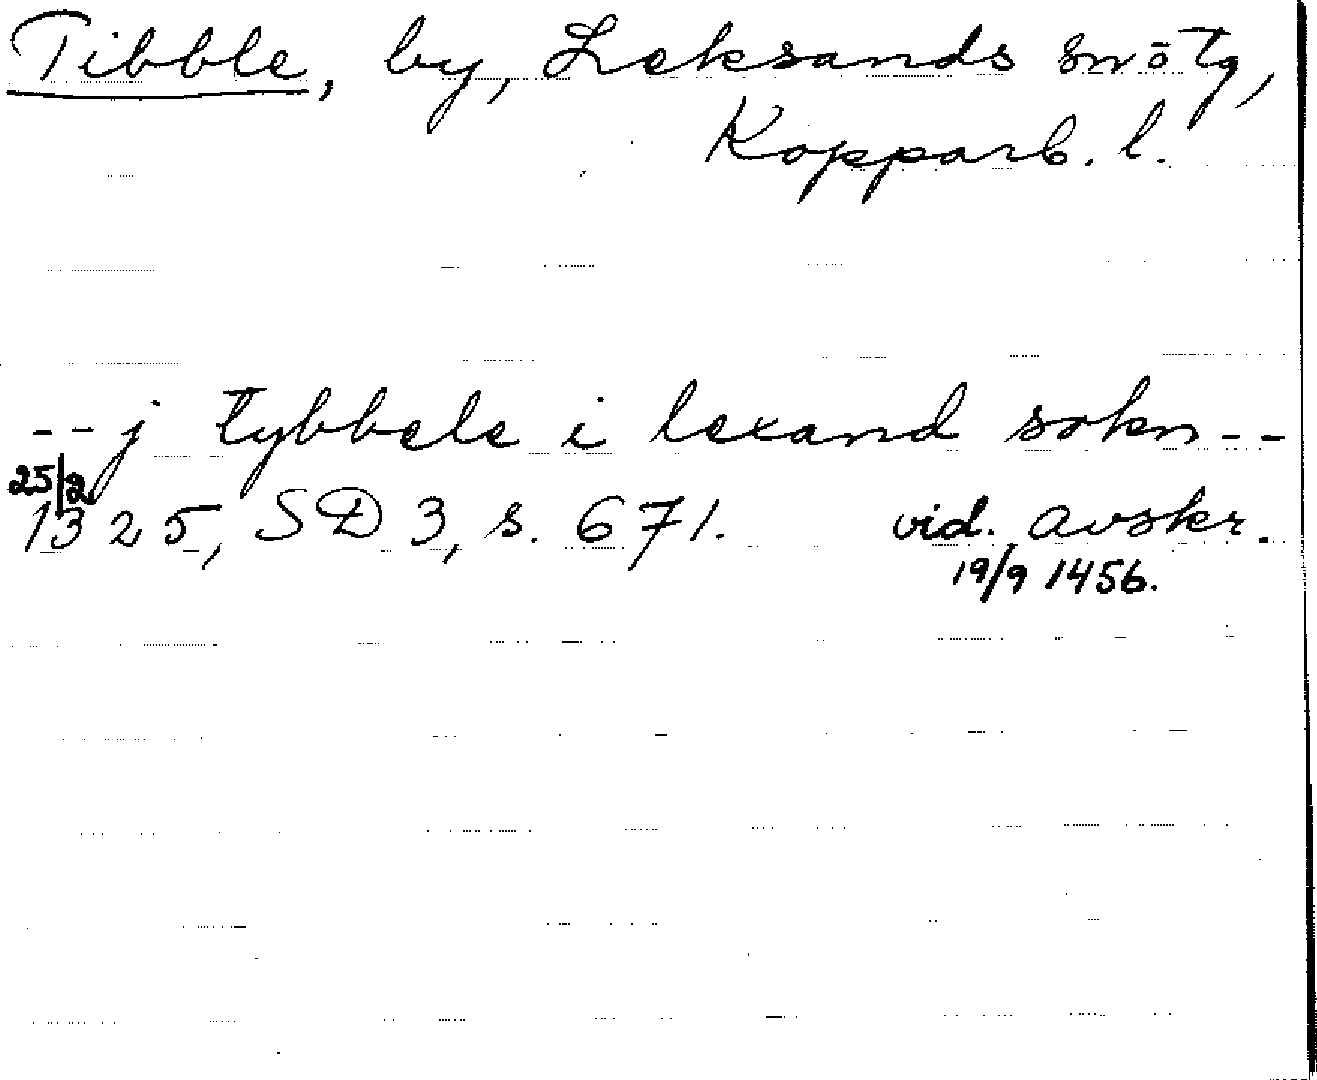 Tibble, by, Leksands sn o tg,
Kopparb. l.
-- j tybbele i lexand sokn --
25/2
1325, SD 3, s. 671. vid. avskr.
19/9 1456.